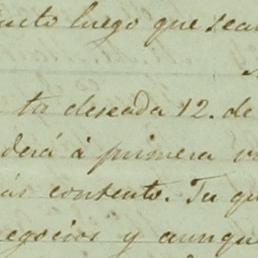 luego que sean
ta deseada 12. de
derá á primera
contento. Tu
negocios y aunqu